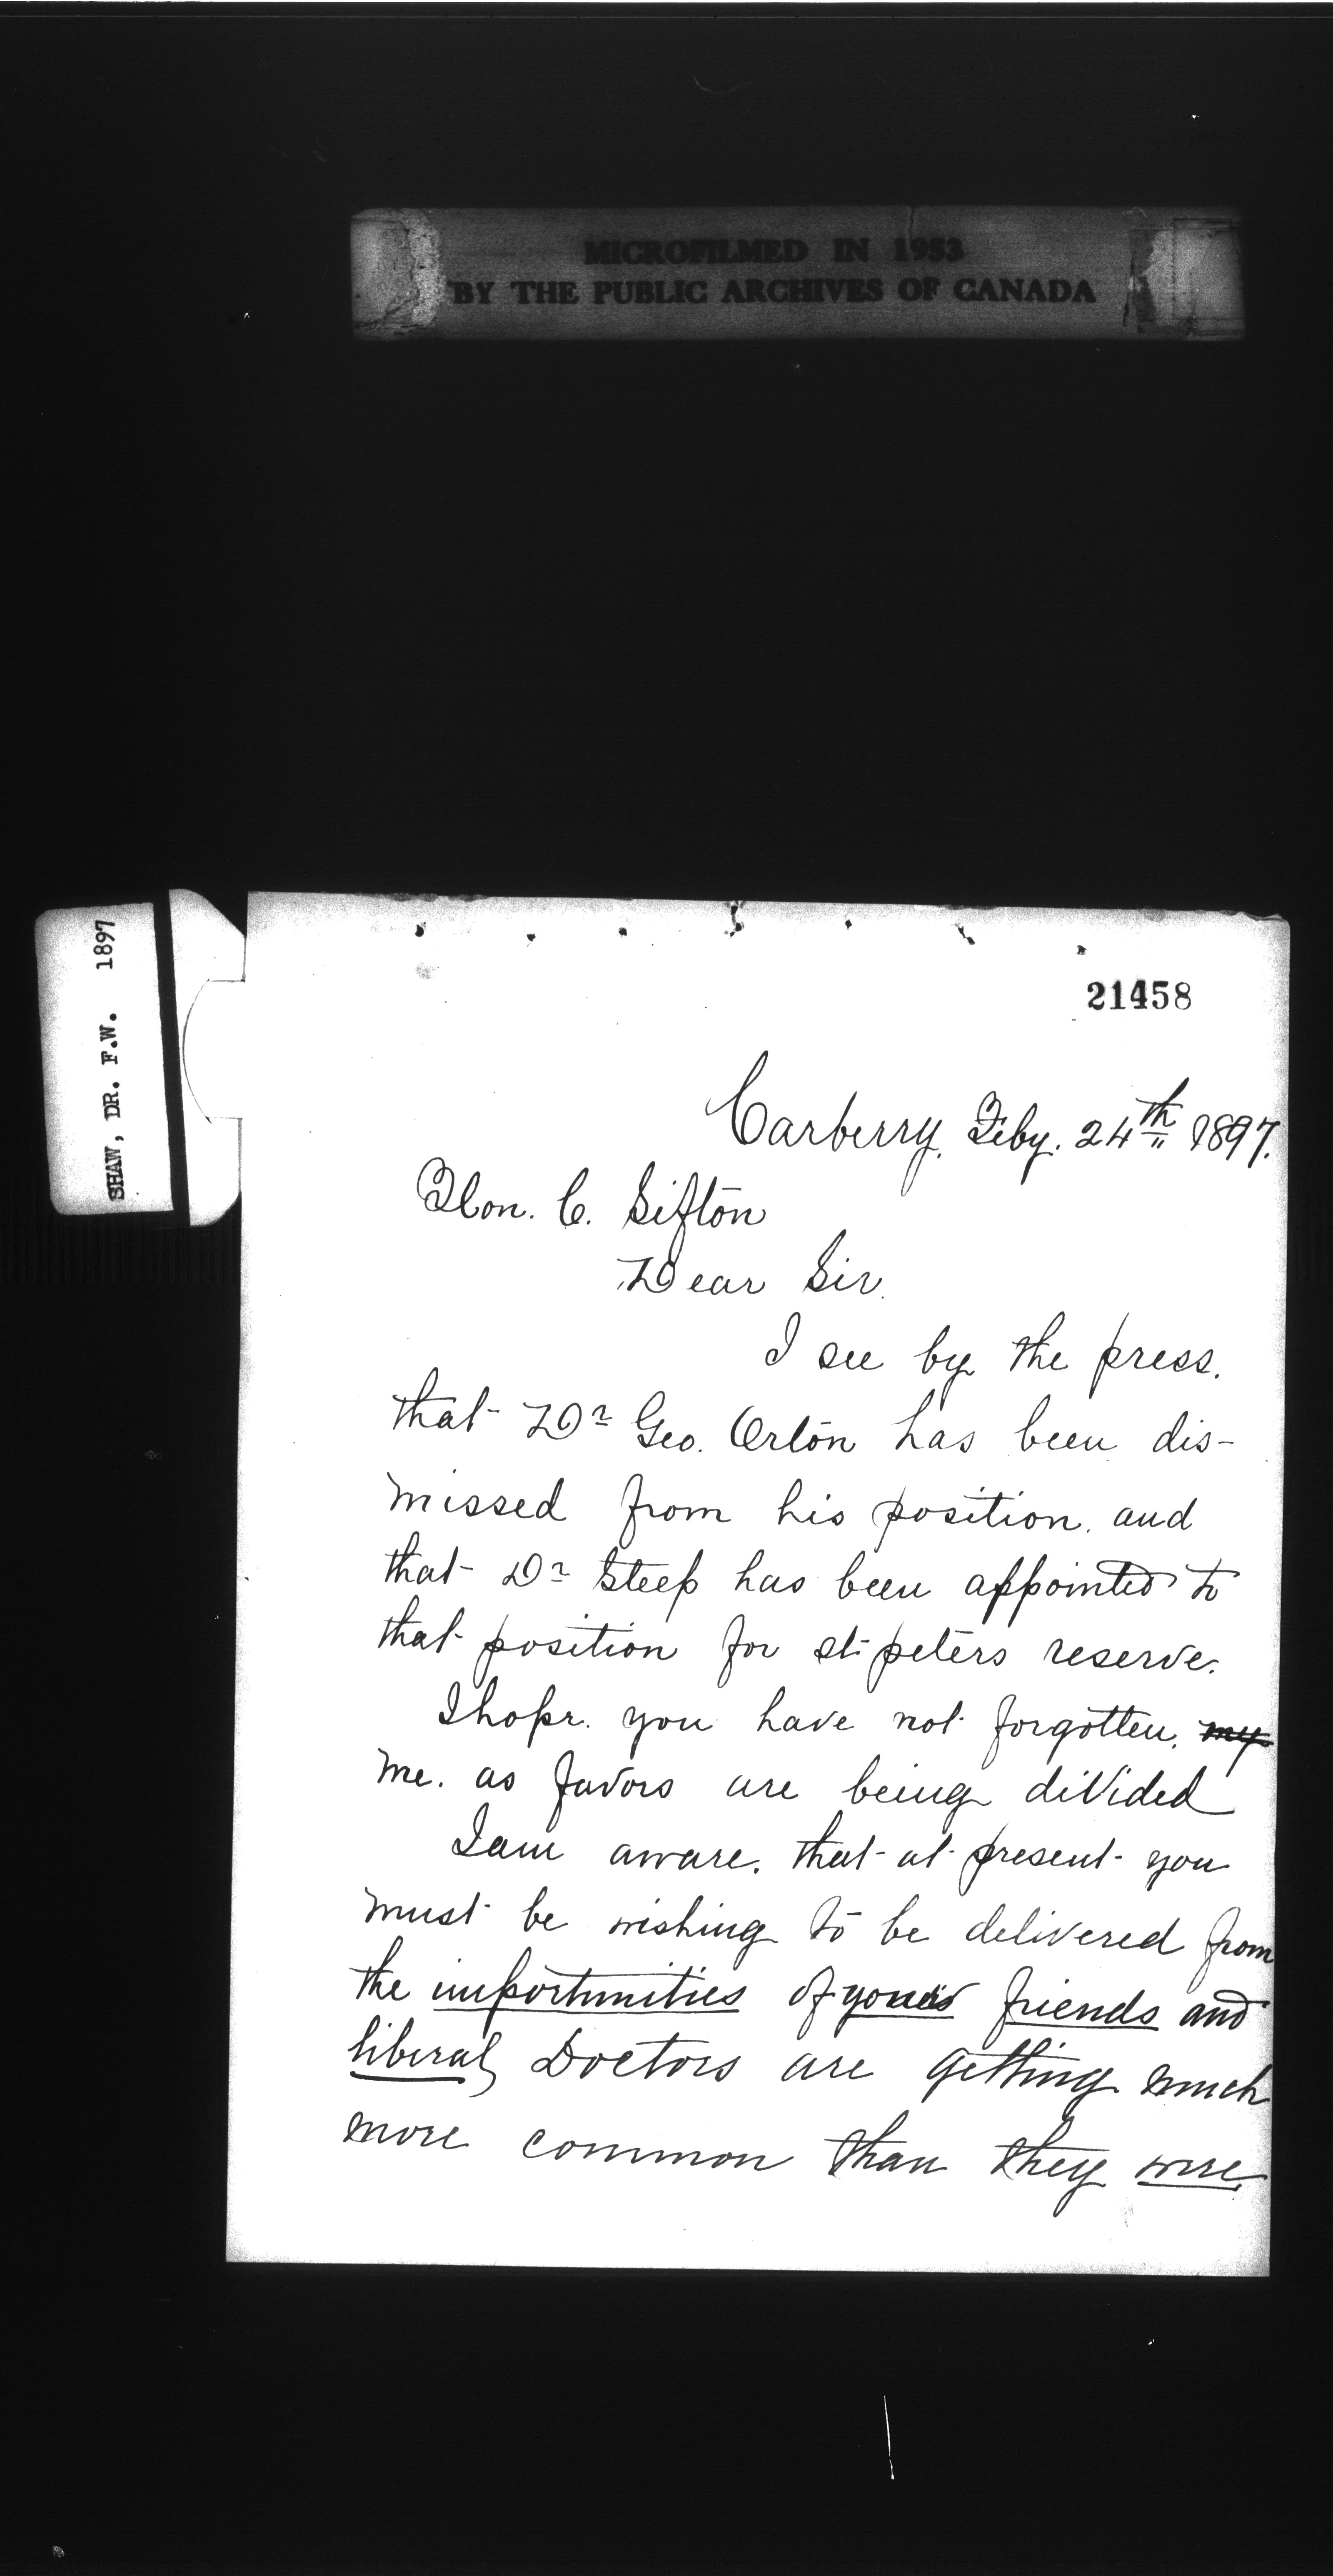 MICROFILMED IN 1953
BY THE PUBLIC ARCHIVES OF CANADA
SHAW, DR. F.W. 1897
21458
Carberry, Feby. 24th 1897.
Hon. C. Sifton
Dear Sir.
I see by the press.
that Dr Geo. Orton has been dis-
missed from his position. and
that Dr Steep has been appointed to
that position for st. peters reserve.
I hope. you have not forgotten. my
me. as favors are being divided
I am aware. that at present you
must be wishing to be delivered from
the importunities of your friends and
liberal Doctors are getting much
more common than they were